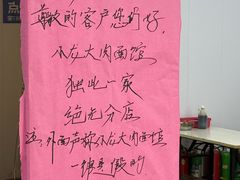 尊敬的客户您们好.
不允大肉面馆
独此一家
绝无分店
注:外面声称不允大肉面馆
一律是假的